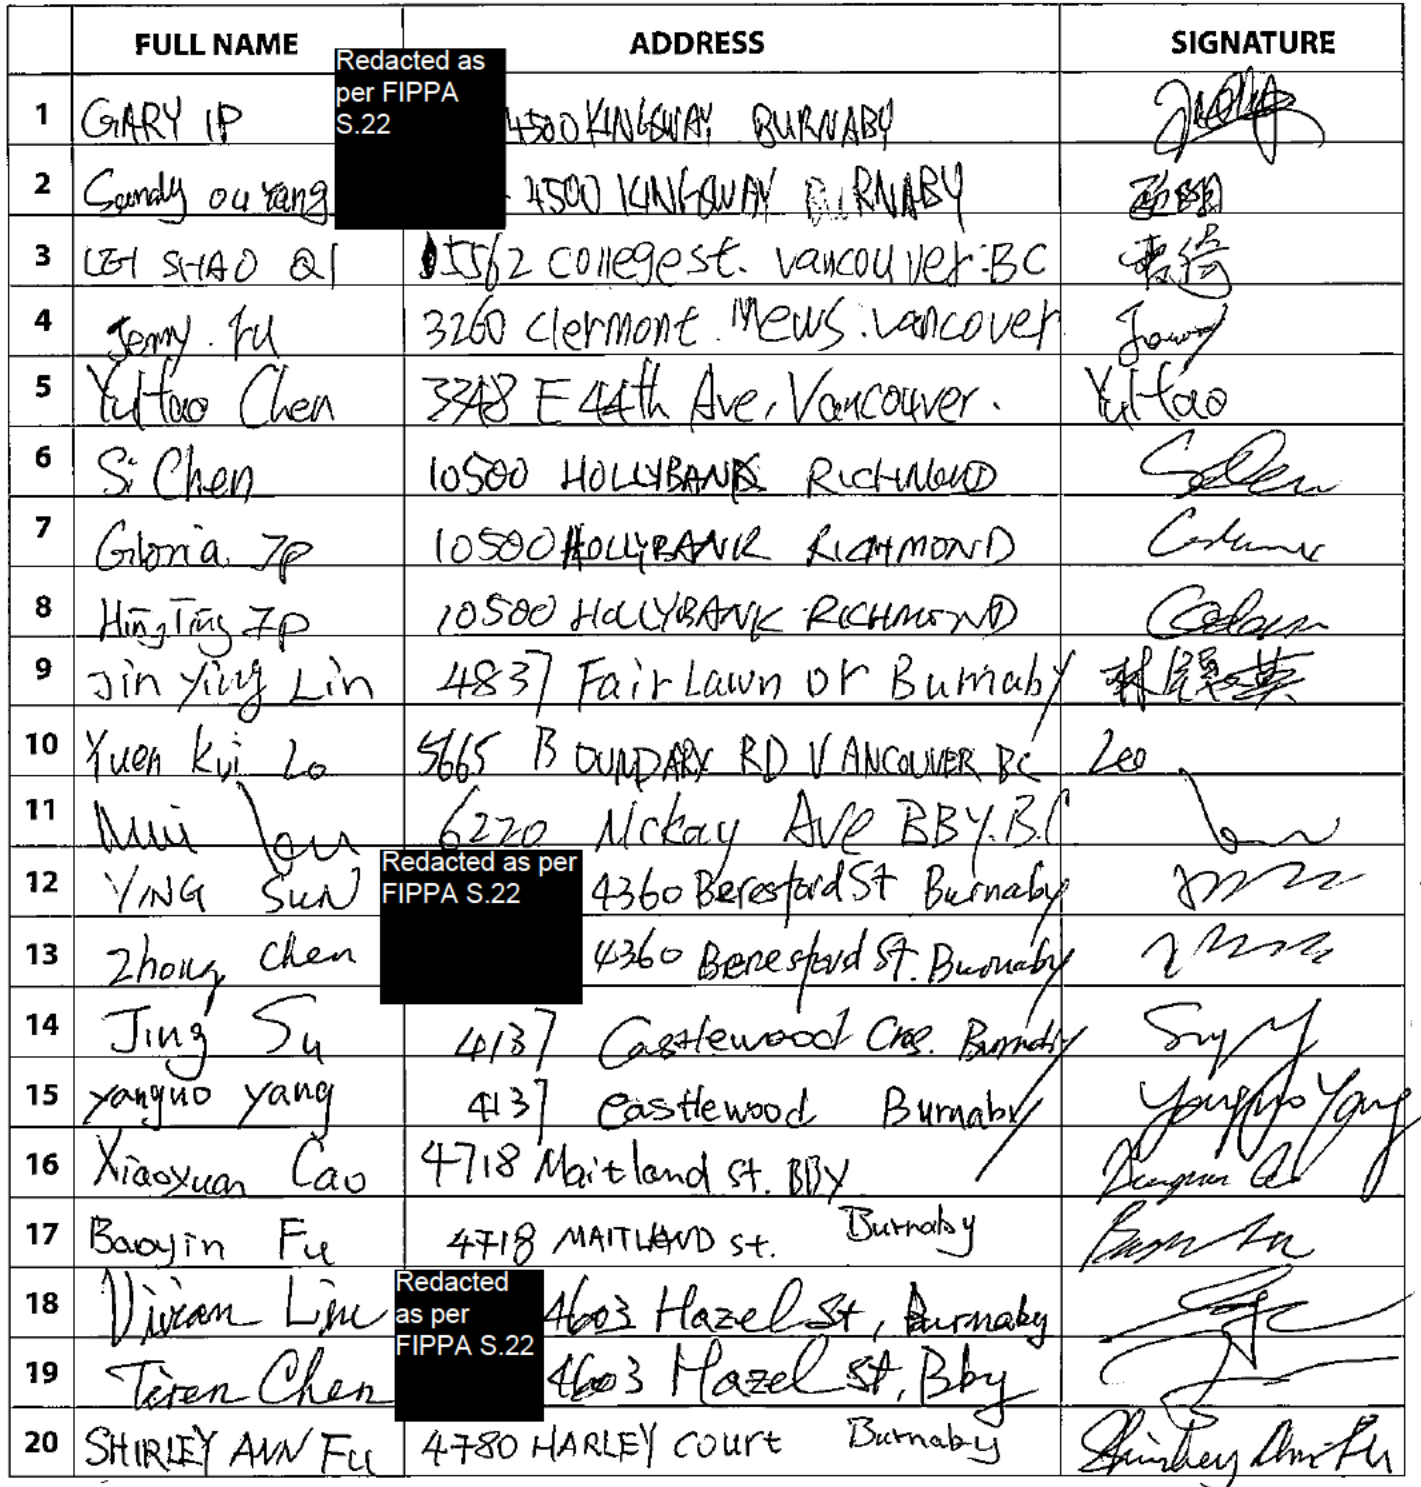 FULL NAME ADDRESS SIGNATURE
Redacted as per FIPPA S.22
1 GARY IP 4500 KINGSWAY BURNABY
2 Sandy ou Yang 4500 KINGSWAY BURNABY
3 LEI SHAO QI 5562 college st. vancouver BC
4 Jerry Fu 3260 clermont Mews. vancover
5 Yultao Chen 3348 E 44th Ave, Vancouver. Yultao
6 Si Chen 10500 HOLLYBANK RICHMOND
7 Gloria Ip 10500 HOLLYBANK RICHMOND
8 Hing Ting Ip 10500 HOLLYBANK RICHMOND
9 Jin Ying Lin 4837 Fair Lawn Dr Burnaby
10 Yuen Kui Lo 5665 BOUNDARY RD VANCOUVER BC Leo
11 6220 Mckay Ave BBY. B.C
Redacted as per FIPPA S.22
12 YING SUN 4360 Beresford St Burnaby
13 Zhong chen 4360 Beresford St. Burnaby
14 Jing Su 4137 Castlewood Cres. Burnaby
15 yanguo yang 4137 Castlewood Burnaby Yanguo Yang
16 Xiaoxuan Cao 4718 Maitland St. BBY
17 Baoyin Fu 4718 MAITLAND St. Burnaby
Redacted as per FIPPA S.22
18 Vivian Lin 4603 Hazel St, Burnaby
19 Teren Chen 4603 Hazel St, Bby
20 SHIRLEY ANN Fu 4780 HARLEY court Burnaby Shirley Ann Fu